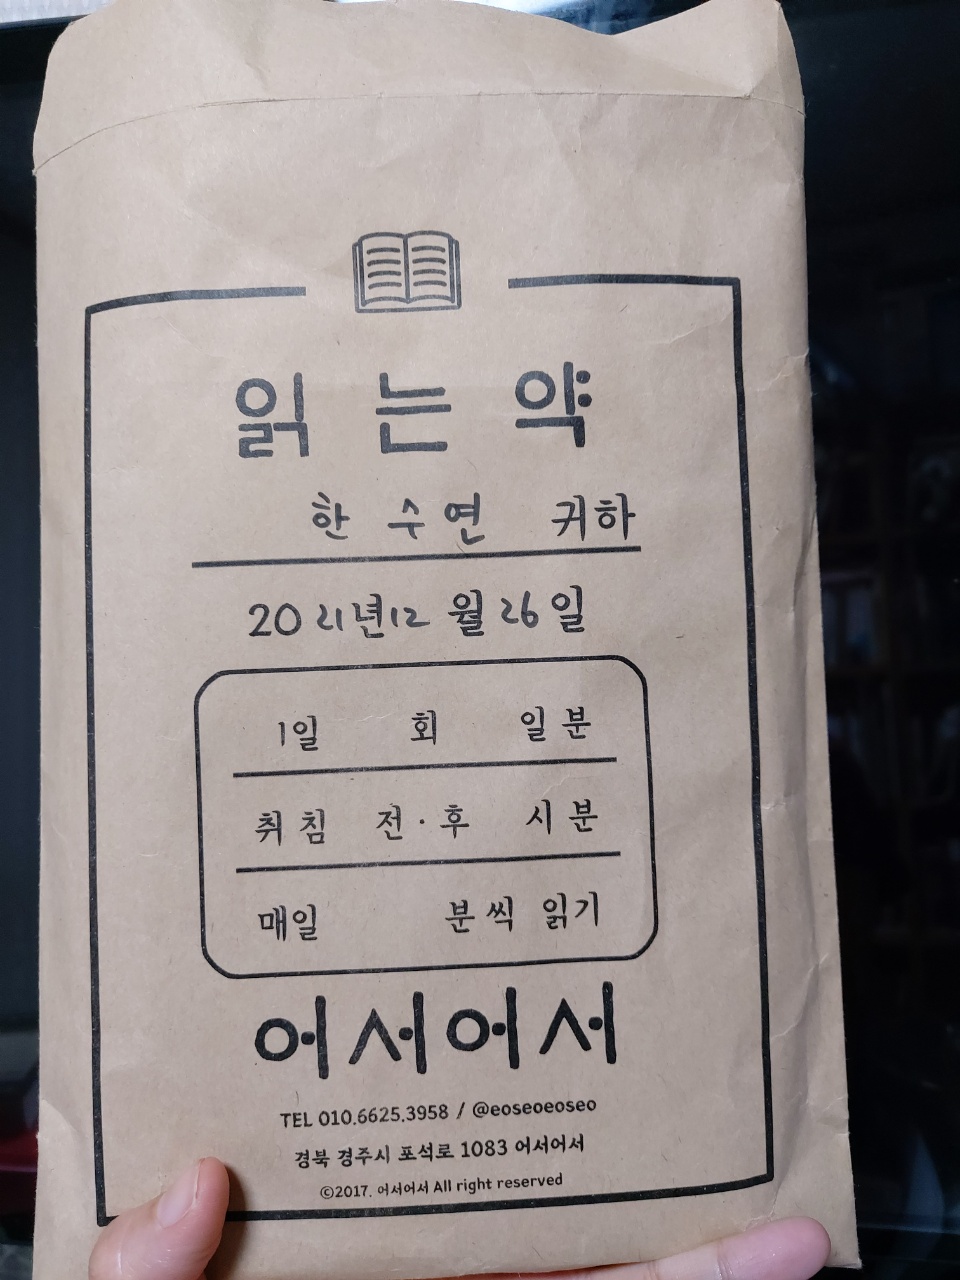 읽는약
한수연 귀하
2021년12월26일
1일 회 일분
취침 전·후 시분
매일 분씩 읽기
어서어서
TEL 010.6625.3958 / @eoseoeoseo
경북 경주시 포석로 1083 어서어서
©2017. 어서어서 All right reserved